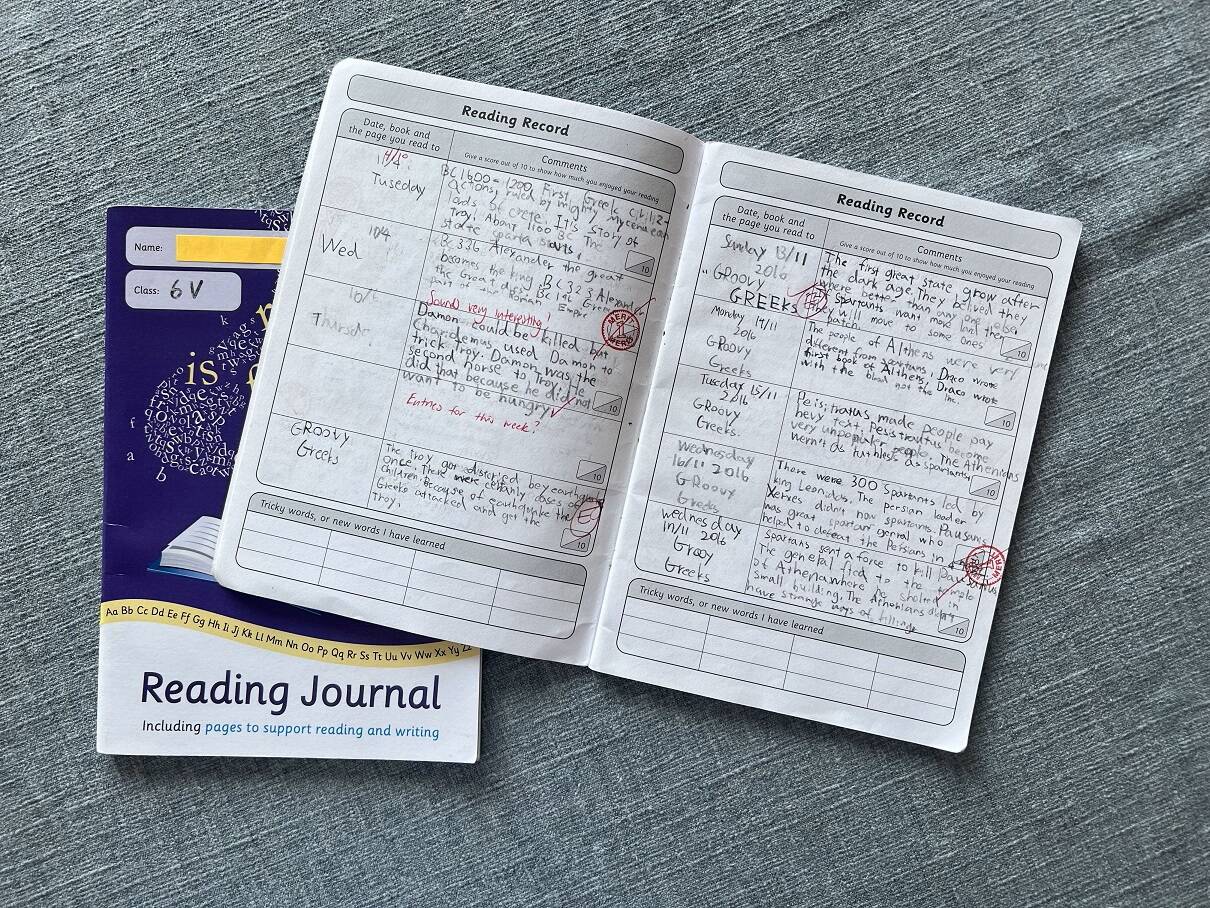 Name:
Class: 6 V
is
Aa Bb Cc Dd Ee Ff Gg Hh Ii Jj Kk Ll Mm Nn Oo Pp Qq Rr Ss Tt Uu Vv Ww Xx Yy Zz
Reading Journal
Including pages to support reading and writing
Reading Record
Date, book and
the page you read to
Comments
Give a score out of 10 to show how much you enjoyed your reading
Tuseday
BC 1600 - 1200 First Greek civiliz-
actons, ruled by mighty Mycenaean
lords of crete. It's story of
Troy. About 1100 BC The
state sparta starts.
10
Wed
10/4
BC 336 Alexander the great
becomes the king. BC 323 Alexand
the Great dies. BC 1st Greek
part of Roman Empir
Sounds very interesting!
MERIT
1
MERIT
Thursday
Damon could be killed but
Charidemus used Damon to
trick Troy. Damon was the
second horse to Troy. He
did that because he did not
want to be hungry
10
Entries for this week?
10
GRoovy
Greeks
The troy got distoried by earthquake
once. There were certanly doses of
children. Because of earthquake the
Greeks attacked and got the
Troy.
10
Tricky words, or new words I have learned
Reading Record
Date, book and
the page you read to
Comments
Give a score out of 10 to show how much you enjoyed your reading
Sunday 13/11
2016
"GROOVY
GREEKS
The first great state grow after
the dark age. They lived they
where better than any one else.
If spartants want more land then
they will move to some ones
patch.
10
Monday 14/11
2016
GRoovy
Greeks
The people of Althens were very
different from spartans, Draco wrote
first book of Althens, Draco wrote
with the blood not the inc.
10
Tuseday 15/11
2016
GRoovy
Greeks.
Peisitratas made people pay
hevy text. Pesistrautus become
very unpopuler people. The Athenians
wern't as ruthles as spartants
10
Wednesday
16/11 2016
GRoovy
Greeks
There were 300 Spartants led by
king Leonidas. The persian leader
Xerxes didn't now spartants. Pausanis
was great spartan genral who
helped to defeat the Persians in
wednesday
2016
Grooy
Greeks
Spartans sent a force to kill Pausanius
The general fled to the temple
of Athena where he shelted in
small building. The Athenians didn't
have strange ways of killing
MERIT
10
Tricky words, or new words I have learned